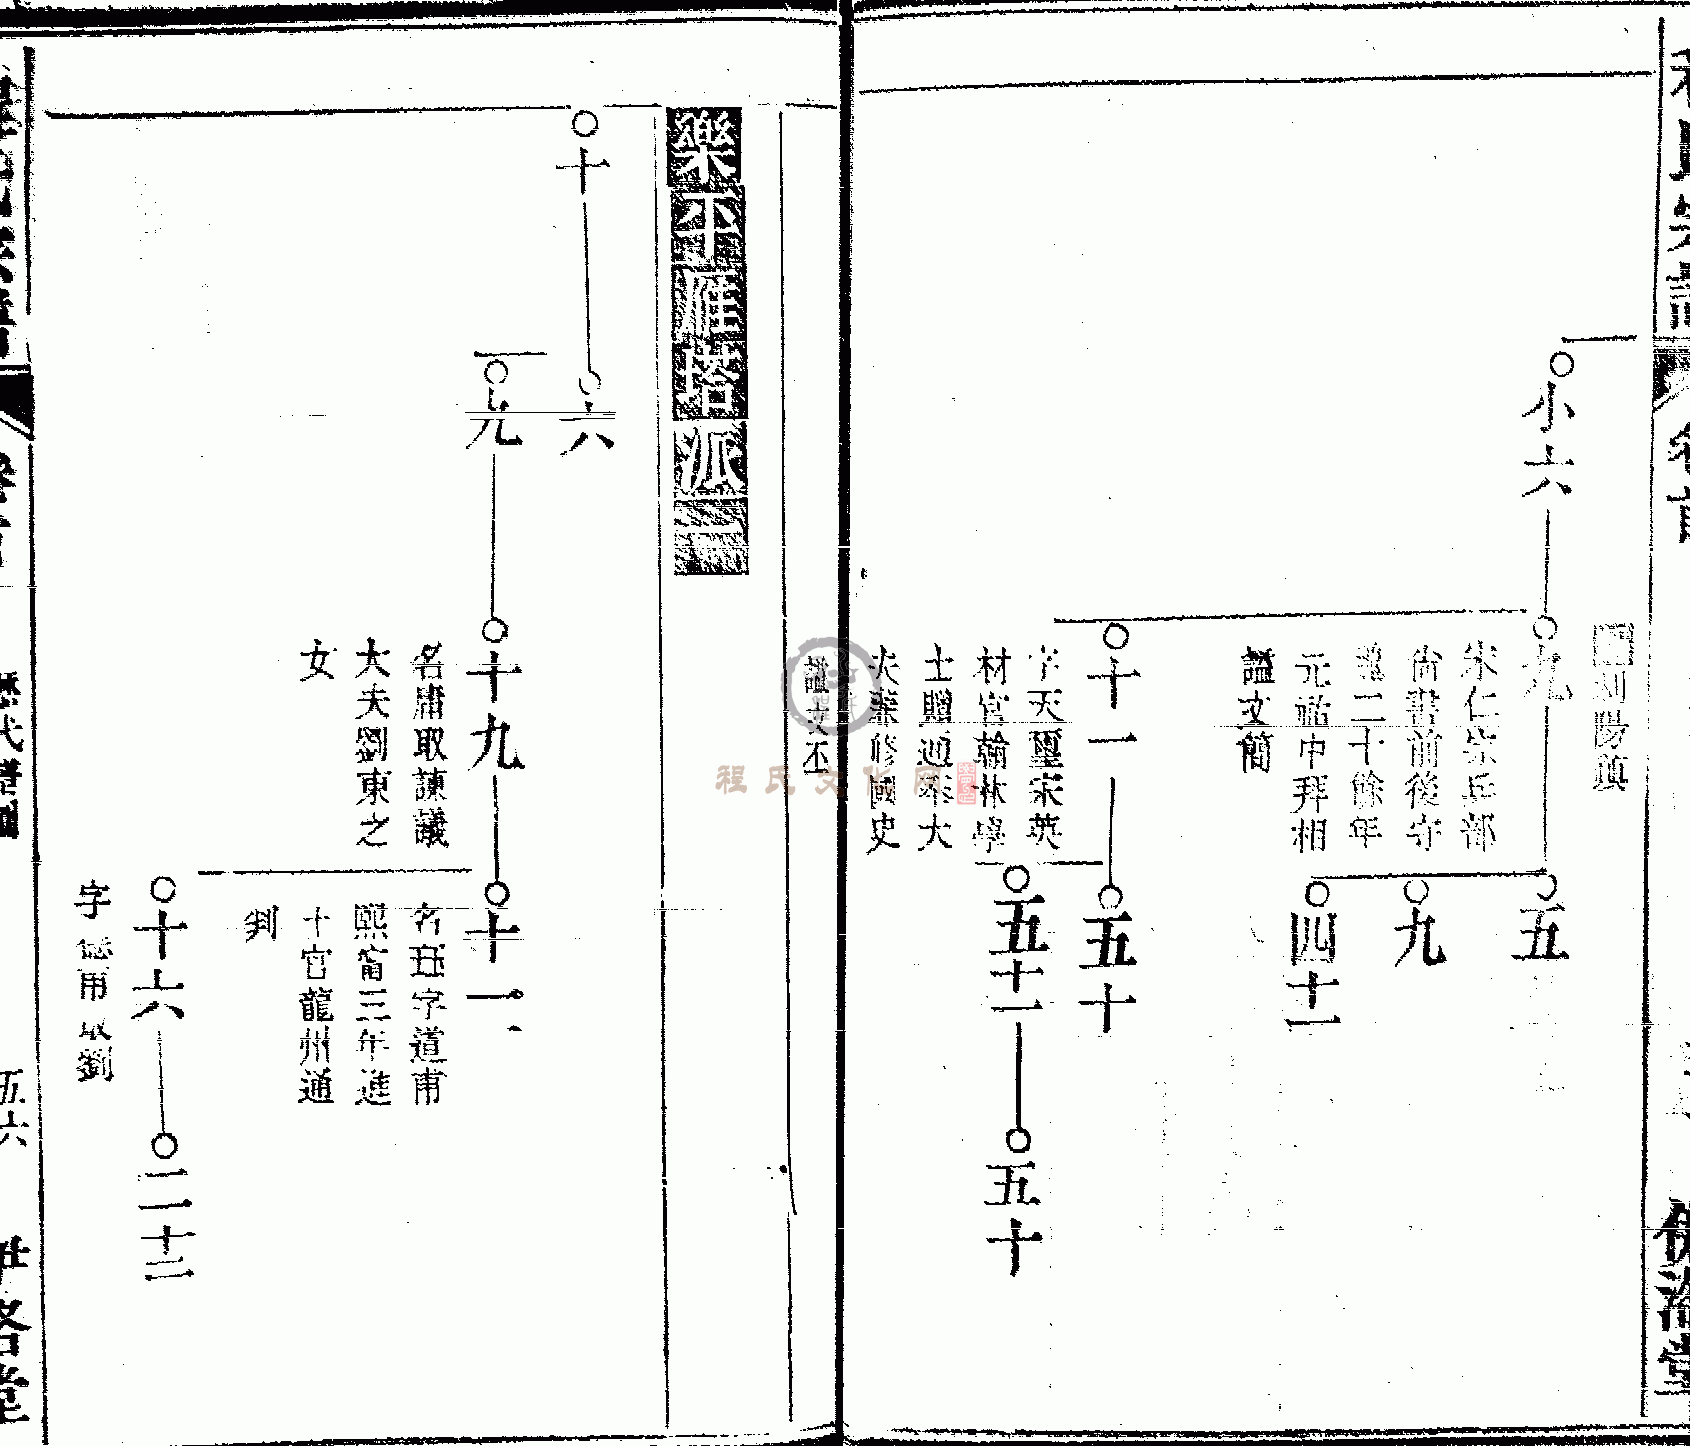 小六
九
宋仁宗兵部
尚書前後守
二十餘年
元祐中拜相
謚文簡
五
九
四十一
十一
字天璽宋英
材官翰林學
士贈通奉大
夫兼修國史
謚文丕
五十
五十一
五十
樂平
派
十
六
九
十九
名庸取諫議
大夫劉東之
女
十一
名珏字道甫
熙甯三年進
士官龍州通
判
十六
字德甫取劉
二十二
歷代譜圖
五六
程氏文化网